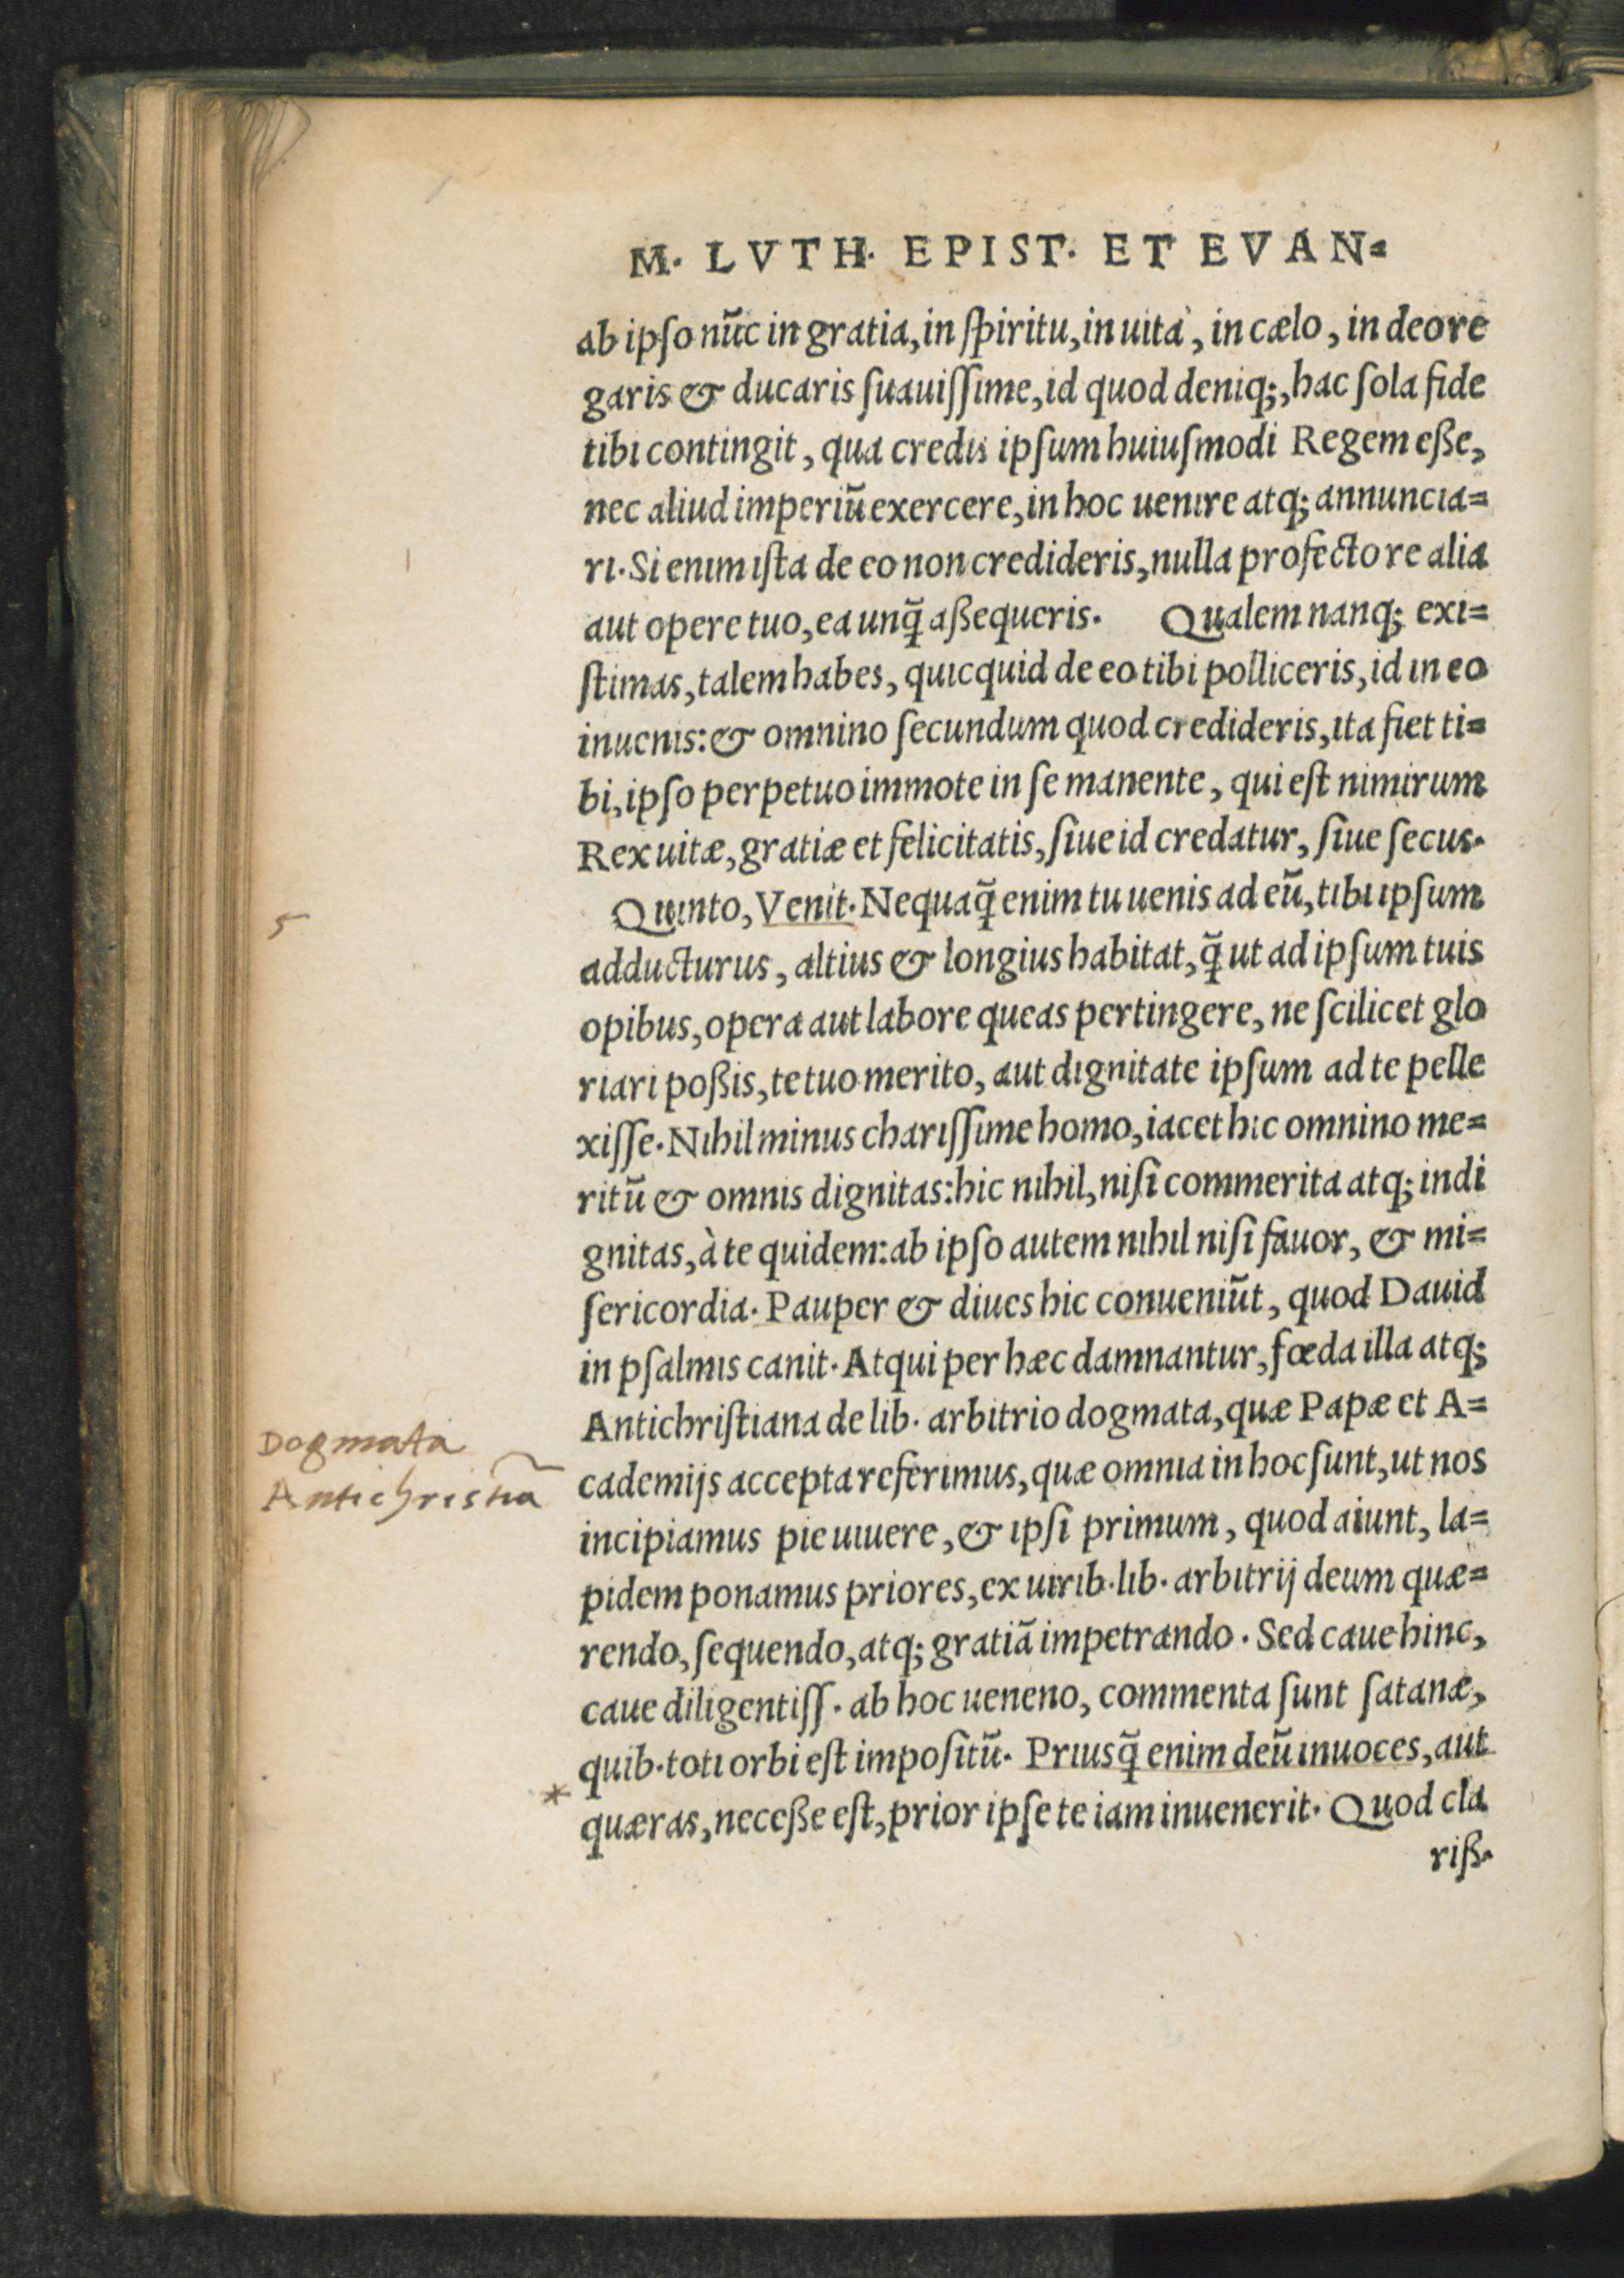 M. LVTH. EPIST. ET EVAN=
ab ipſo nũc in gratia, in ſpiritu, in uita, in cælo, in deo re
garis & ducaris ſuauiſſime, id quod deniq;, hac ſola fide
tibi contingit, qua credis ipſum huiuſmodi Regem eße,
nec aliud imperiũ exercere, in hoc uenire atq; annuncia=
ri. Si enim iſta de eo non credideris, nulla profecto re alia
aut opere tuo, ea unq̃ aßequeris. Qualem nanq; exi=
ſtimas, talem habes, quicquid de eo tibi polliceris, id in eo
inuenis: & omnino ſecundum quod credideris, ita fiet ti=
bi, ipſo perpetuo immote in ſe manente, qui eſt nimirum
Rex uitæ, gratiæ et felicitatis, ſiue id credatur, ſiue ſecus.
5 Quinto, Venit. Nequaq̃ enim tu uenis ad eũ, tibi ipſum
adducturus, altius & longius habitat, q̃ ut ad ipſum tuis
opibus, opera aut labore queas pertingere, ne ſcilicet glo
riari poßis, te tuo merito, aut dignitate ipſum ad te pelle
xiſſe. Nihil minus chariſſime homo, iacet hic omnino me=
ritũ & omnis dignitas: hic nihil, niſi commerita atq; indi
gnitas, à te quidem: ab ipſo autem nihil niſi fauor, & mi=
ſericordia. Pauper & diues hic conueniũt, quod Dauid
in pſalmis canit. Atqui per hæc damnantur, fœda illa atq;
Antichriſtiana de lib. arbitrio dogmata, quæ Papæ et A=
cademijs accepta referimus, quæ omnia in hoc ſunt, ut nos
incipiamus pie uiuere, & ipſi primum, quod aiunt, la=
pidem ponamus priores, ex uirib. lib. arbitrij deum quæ=
rendo, ſequendo, atq; gratiã impetrando. Sed caue hinc,
caue diligentiſſ. ab hoc ueneno, commenta ſunt ſatanæ,
quib. toti orbi eſt impoſitũ. Priusq̃ enim deũ inuoces, aut
* quæras, neceße eſt, prior ipſe te iam inuenerit. Quod cla
riß.
Dogmata
Antichristia